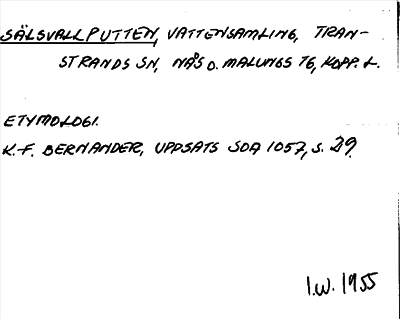 SÄLSVALLPUTTEN, VATTENSAMLING, TRAN-
STRANDS SN, NÅS O. MALUNGS TG, KOPP. L.
ETYMOLOGI.
K.-F. BERNANDER, UPPSATS SOA 1057, S. 29.
I.W. 1955